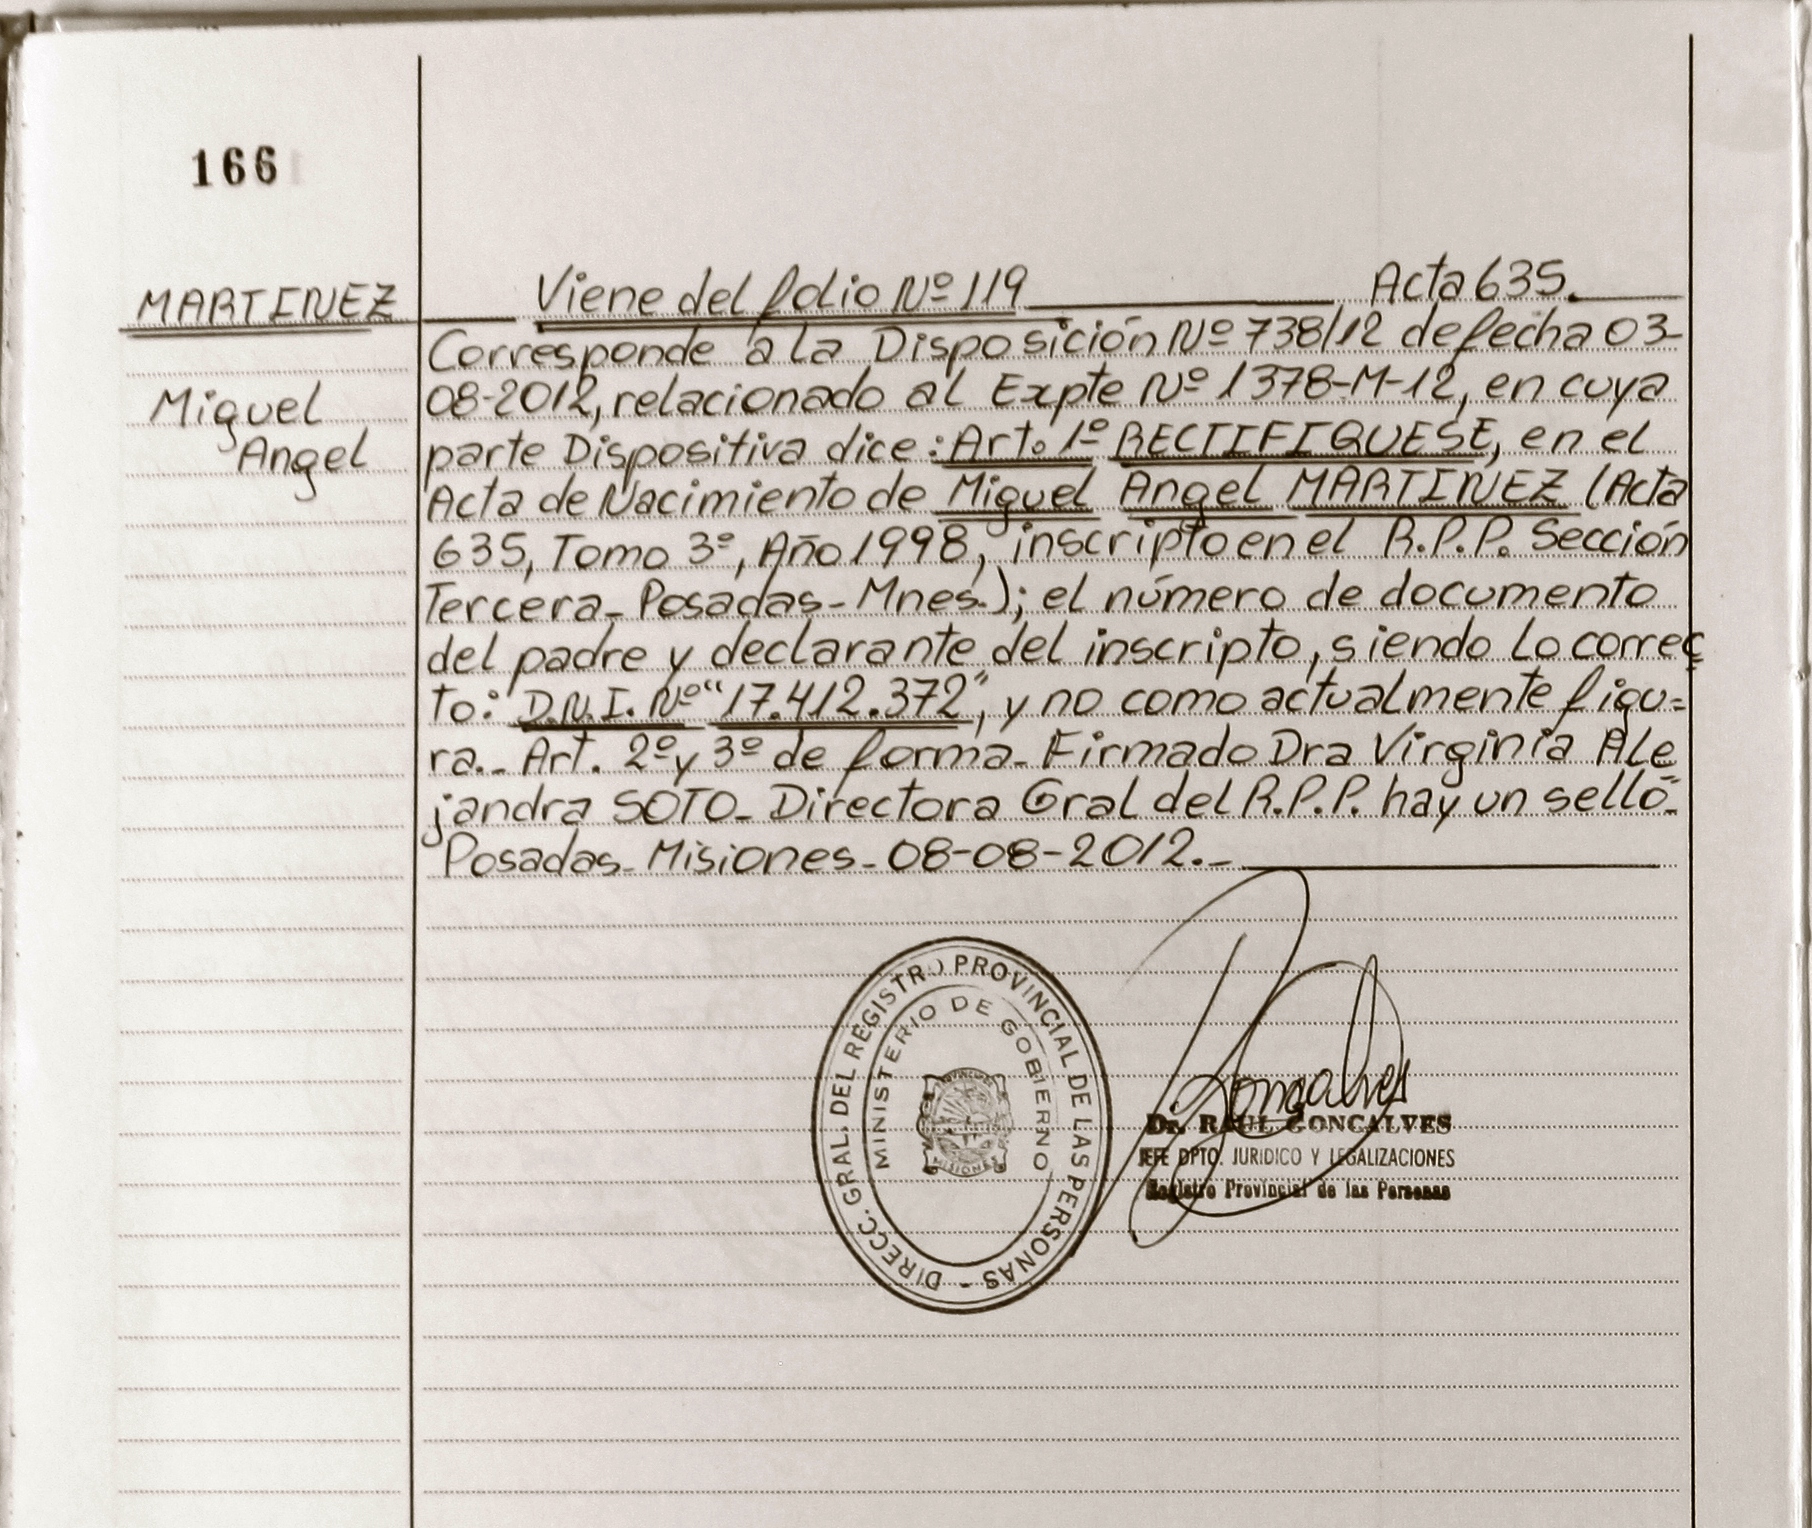 166
MARTINEZ
Miguel
Angel
Viene del folio Nº 119 Acta 635.
Corresponde a la Disposición Nº 738/12 de fecha 03-
08-2012, relacionado al Expte Nº 1378-M-12, en cuya
parte Dispositiva dice: Art. 1º RECTIFIQUESE, en el
Acta de Nacimiento de Miguel Angel MARTINEZ (Acta
635, Tomo 3º, Año 1998, inscripto en el R.P.P. Sección
Tercera- Posadas- Mnes.); el número de documento
del padre y declarante del inscripto, siendo lo correc
to: D.N.I. Nº "17.412.372", y no como actualmente figu=
ra.- Art. 2º y 3º de forma- Firmado Dra Virginia Ale
jandra SOTO- Directora Gral del R.P.P. hay un sello"-
Posadas- Misiones- 08-08-2012.-
DIRECC. GRAL. DEL REGISTRO PROVINCIAL DE LAS PERSONAS -
MINISTERIO DE GOBIERNO
MISIONES
Goncalves
Dr. RAUL GONCALVES
JEFE DPTO. JURIDICO Y LEGALIZACIONES
Registro Provincial de las Personas